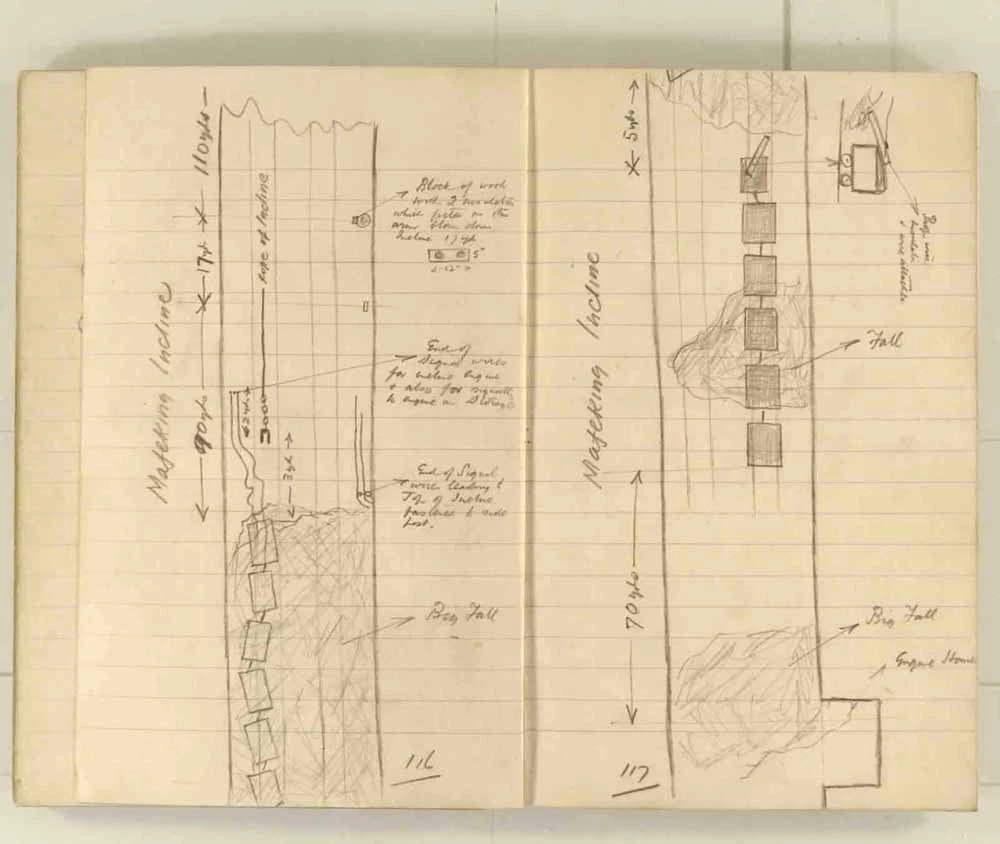 Mafeking Incline
110 yds
17 yds
90 yds
Rope of Incline
3 yds
Block of wood
with 2 insulators
which fits on the
arms blown down
Incline 17 yds
5"
12"
End of
Signal wires
for incline engine
& also for signals
to engine in
End of Signal
wires leading to
Top of Incline
fastened to side
post.
Big Fall
116
Mafeking Incline
5 yds
wire
insulators
& wire attached
Fall
70 yds
Big Fall
Engine House
117